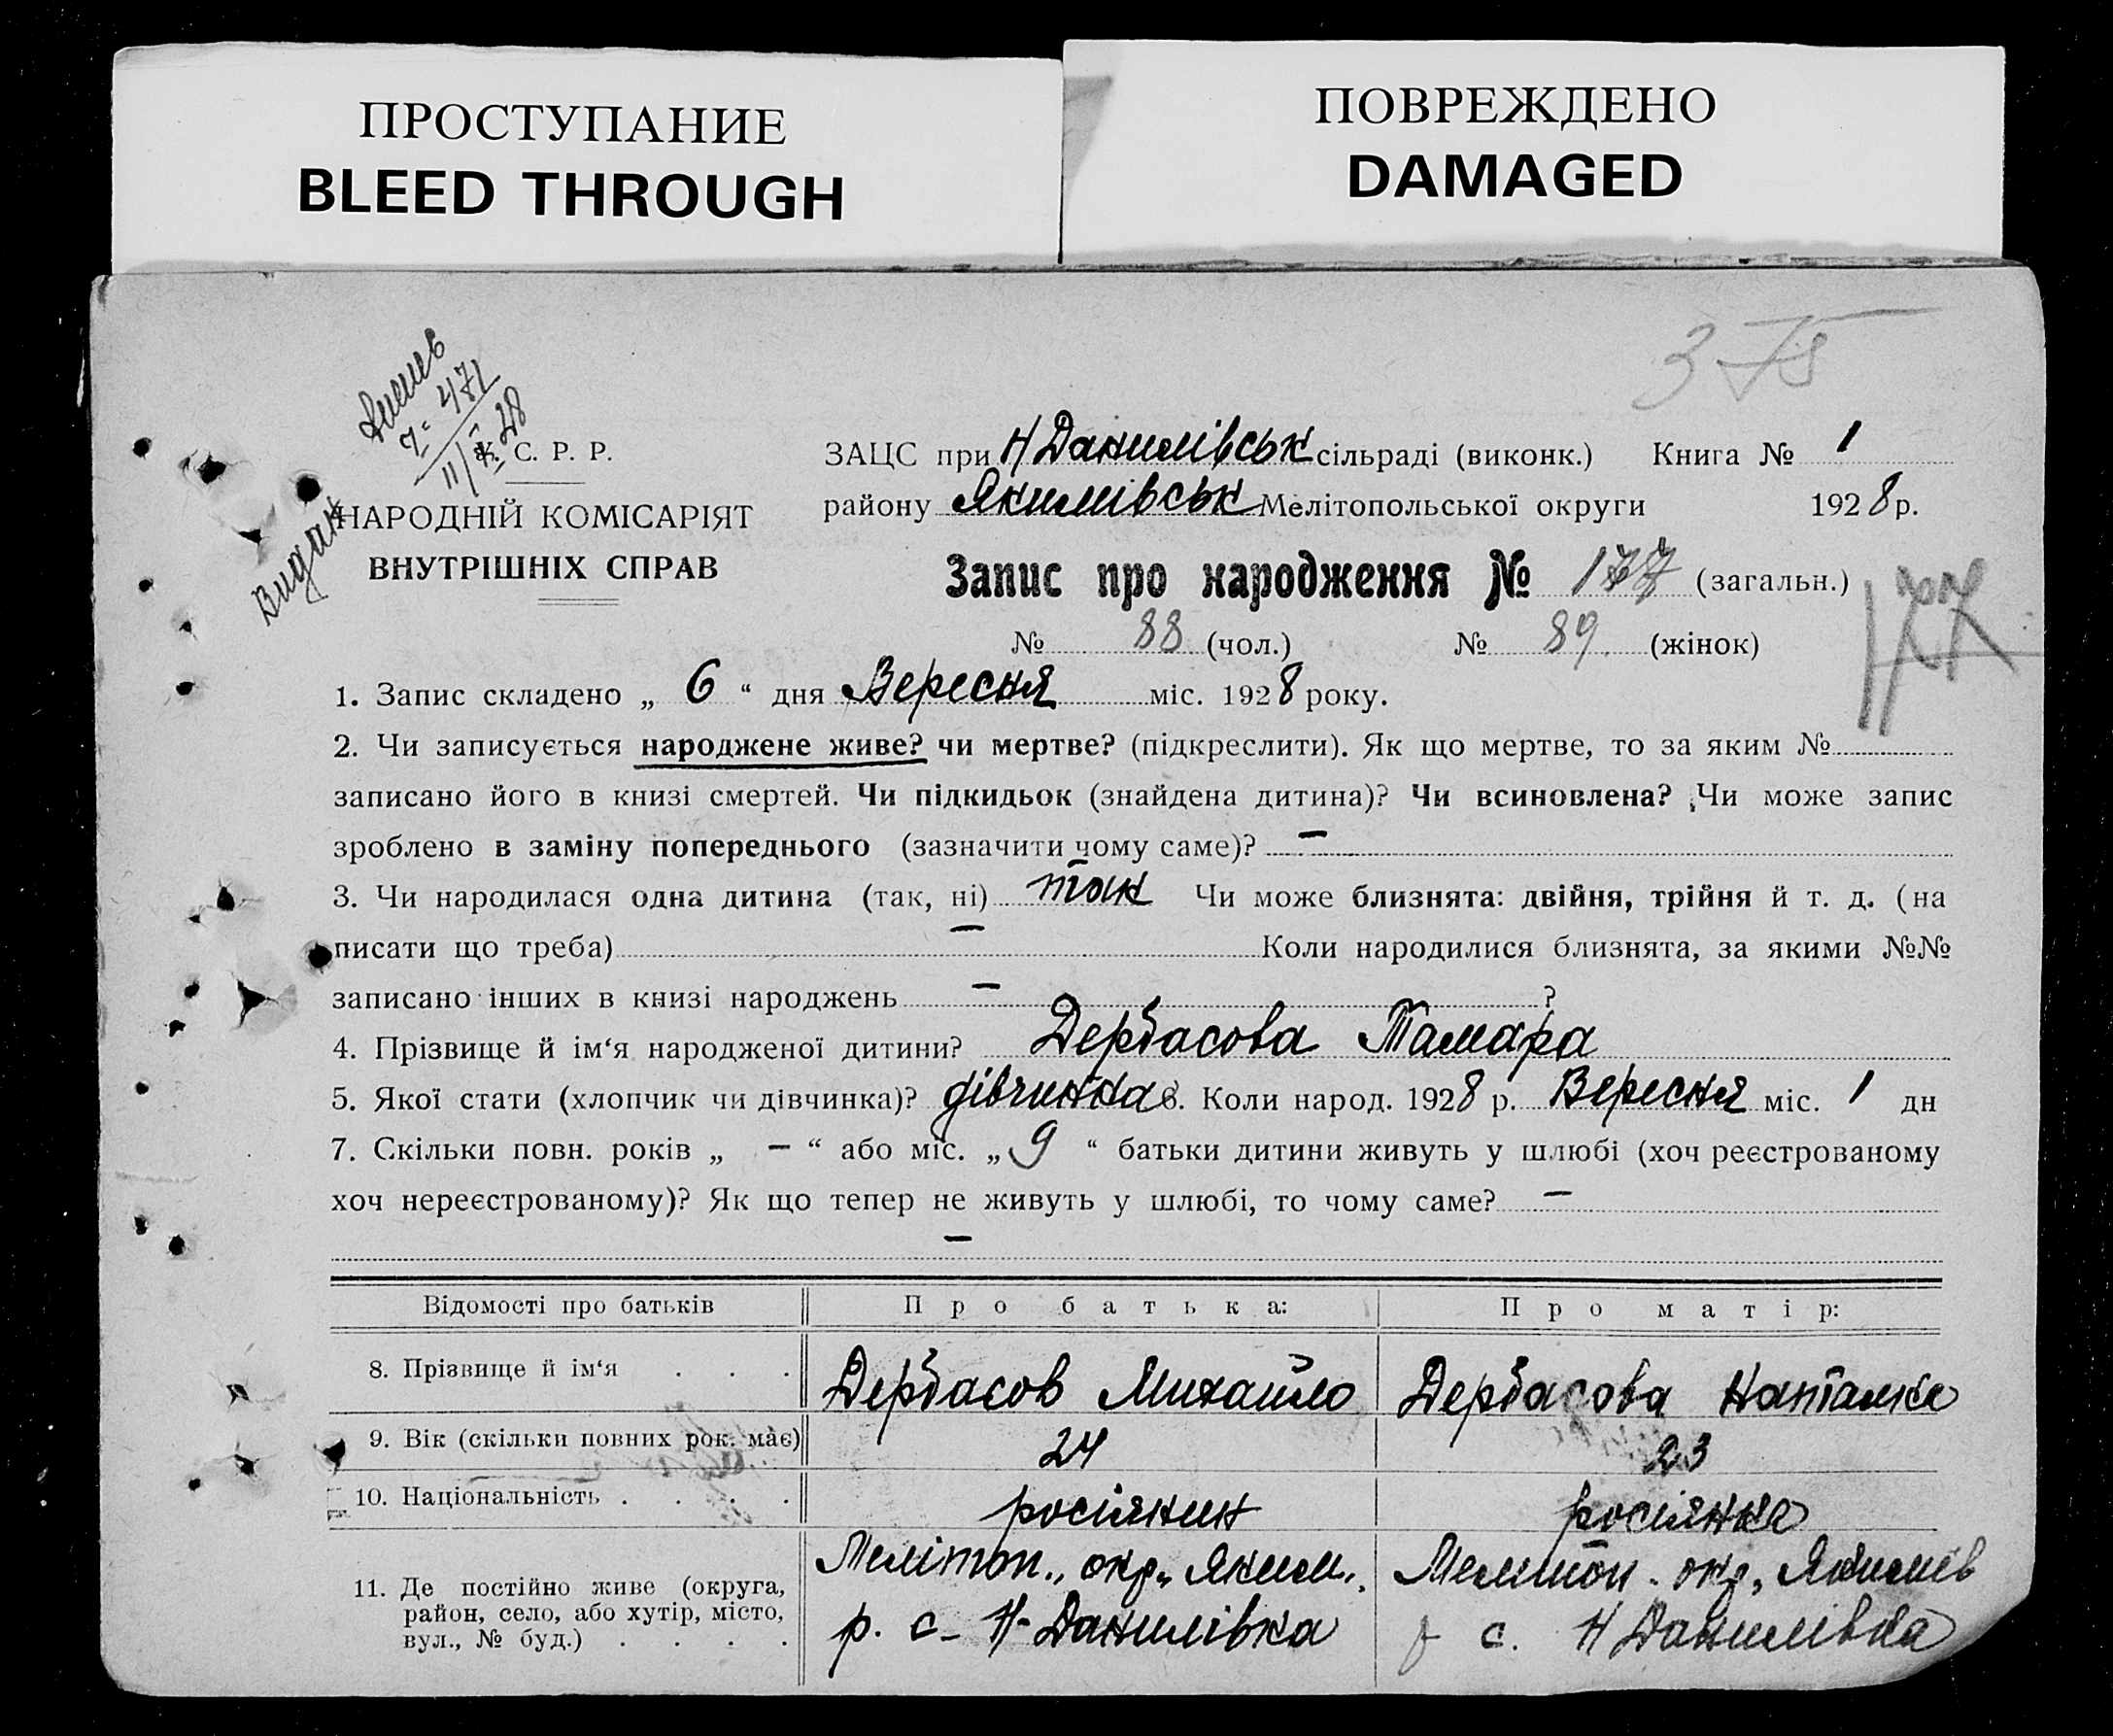 ПРОСТУПАНИЕ
BLEED THROUGH
ПОВРЕЖДЕНО
DAMAGED
375
471
28
Видан
С. Р. Р.
НАРОДНІЙ КОМІСАРІЯТ
ВНУТРІШНІХ СПРАВ
ЗАЦС при Н Данилівськ сільраді (виконк.) Книга № 1
району Якимівськ Мелітопольської округи 1928 р.
Запис про народження № 177 (загальн.)
177
№ 88 (чол.) № 89 (жінок)
1. Запис складено „ 6 “ дня Вересня міс. 1928 року.
2. Чи записується народжене живе? чи мертве? (підкреслити). Як що мертве, то за яким №
записано його в книзі смертей. Чи підкидьок (знайдена дитина)? Чи всиновлена? Чи може запис
зроблено в заміну попереднього (зазначити чому саме)? —
3. Чи народилася одна дитина (так, ні) так Чи може близнята: двійня, трійня й т. д. (на
писати що треба) — Коли народилися близнята, за якими №№
записано інших в книзі народжень — ?
4. Прізвище й ім‘я народженої дитини? Дербасова Тамара
5. Якої стати (хлопчик чи дівчинка)? дівчинка 6. Коли народ. 1928 р. Вересня міс. 1 дн
7. Скільки повн. років „ — “ або міс. „ 9 “ батьки дитини живуть у шлюбі (хоч реєстрованому
хоч нереєстрованому)? Як що тепер не живуть у шлюбі, то чому саме? —
—
Відомості про батьків Про батька: Про матір:
8. Прізвище й ім‘я . . . Дербасов Михайло Дербасова Наталка
9. Вік (скільки повних рок. має) 24 23
10. Національність . . . . росіянин росіянка
11. Де постійно живе (округа, Мелітоп., окр., Яким., Мелитоп. окр, Якимів
район, село, або хутір, місто, р. с. Н-Данилівка р с. Н Данилівка
вул., № буд.) . . . .